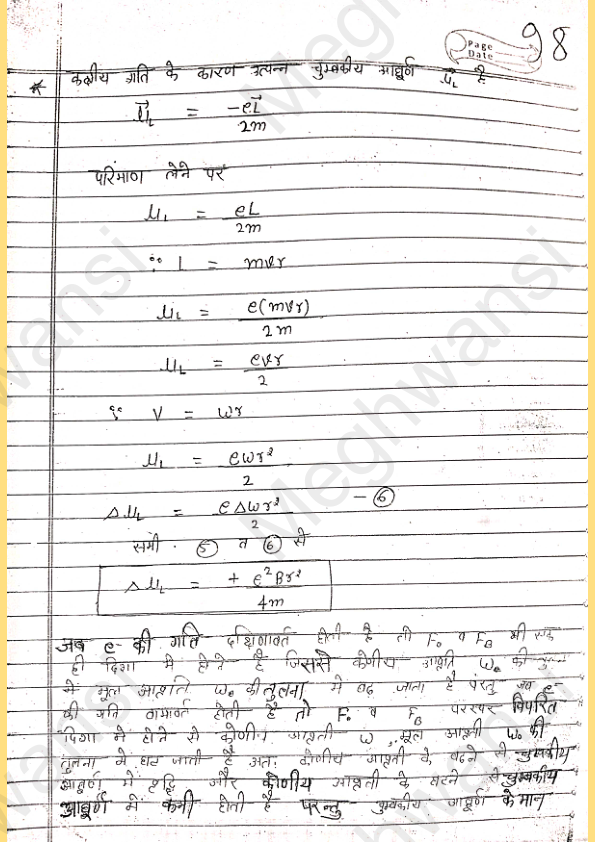 Page
Date
98
* कक्षीय गति के कारण उत्पन्न चुम्बकीय आघूर्ण μ⃗_L है
μ⃗_L = -eL⃗/2m
परिमाण लेने पर
μ_L = eL/2m
∵ L = mvr
μ_L = e(mvr)/2m
μ_L = evr/2
∵ V = ωr
μ_L = eωr²/2
Δμ_L = eΔωr²/2 - ⑥
समी. ⑤ व ⑥ से
Δμ_L = + e²Br²/4m
जब e- की गति दक्षिणावर्त होती है तो F₀ व F_B भी एक
ही दिशा में होते हैं जिससे कोणीय आवृति ω₀ की
में मूल आवृति ω₀ की तुलना में बढ़ जाता है परंतु जब e-
की गति वामावर्त होती है तो F₀ व F_B परस्पर विपरित
दिशा में होने से कोणीय आवृती ω, मूल आवृती ω₀ की
तुलना में घट जाती है अतः कोणीय आवृती के बढने से चुम्बकीय
आघूर्ण में वृद्धि और कोणीय आवृती के घटने से चुम्बकीय
आघूर्ण में कमी होती है परन्तु चुम्बकीय आघूर्ण के मान
Meghwansi